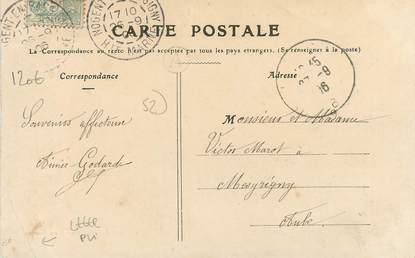 NOGENT EN BASSIGNY
17 10
26 -9
HTE MARNE
CARTE POSTALE
La Correspondance au recto n'est pas acceptée par tous les pays étrangers. (Se renseigner à la poste)
Correspondance
Adresse
1206
52
Souvenirs affectueux
Aimée Godard
Monsieur et Madame
Victor Marot à
Mesgrigny
Aube
pli